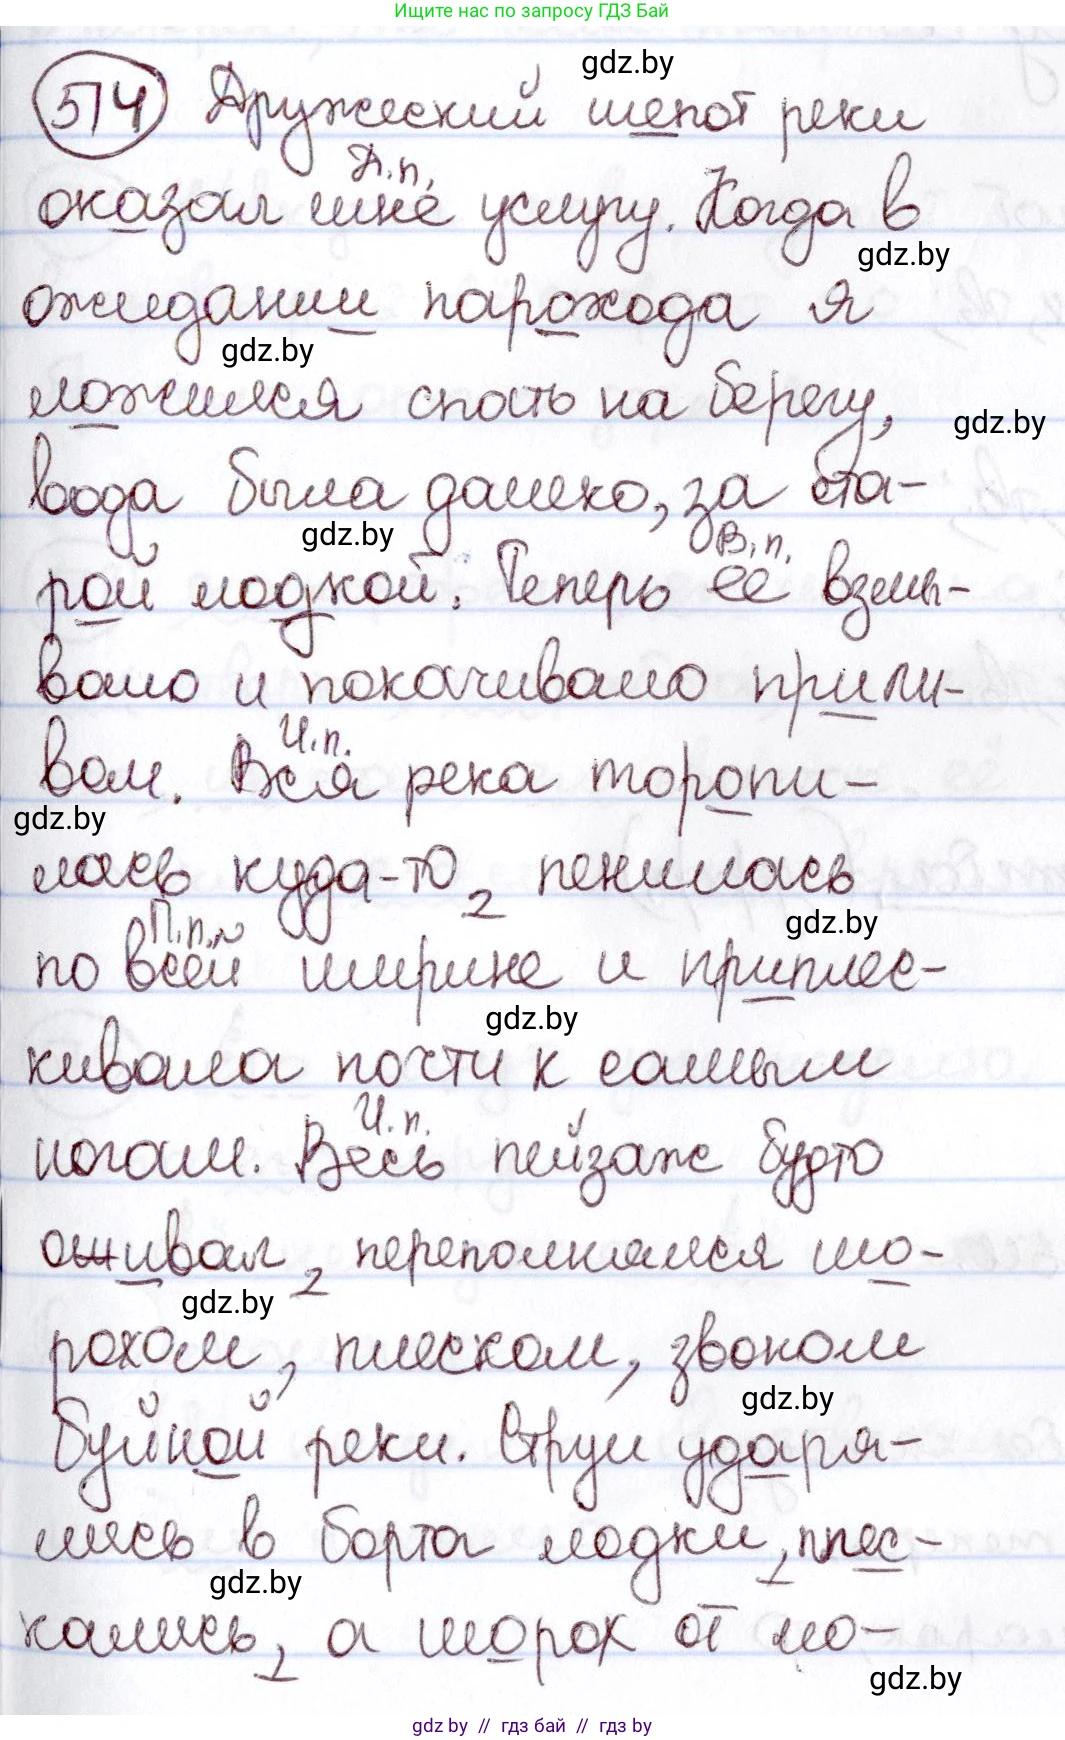 Ищите нас по запросу ГДЗ Бай
gdz.by
514 Дружеский шепот реки
Д.п.
оказал мне услугу. Когда в
gdz.by
ожидании парохода я
gdz.by
ложился спать на берегу,
gdz.by
вода была далеко, за ста-
gdz.by
В.п.
рой лодкой. Теперь её взмы-
вало и покачивало прили-
И.п.
вом. Вся река торопи-
gdz.by
лась куда-то, пенилась
gdz.by
П.п.
по всей ширине и приплес-
gdz.by
кивала почти к самым
И.п.
ногам. Весь пейзаж будто
оживал, переполнялся шо-
gdz.by
рохом, плеском, звоном
gdz.by
буйной реки. Струи ударя-
лись в борта лодки, плес-
gdz.by
кались, а шорох от мо-
gdz.by
gdz by // гдз бай // гдз by